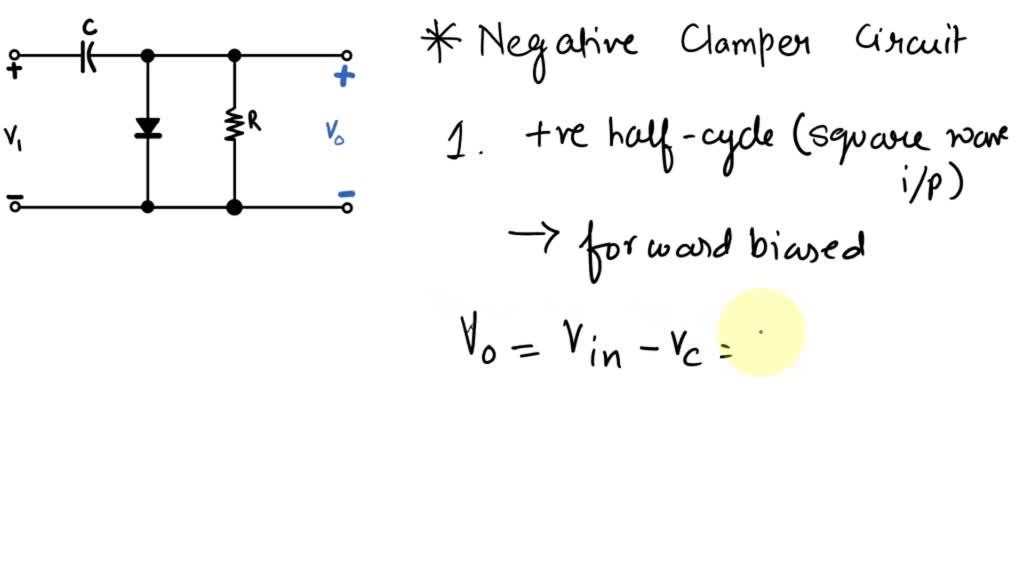 C
+
V₁
−
R
+
V₀
−
* Negative Clamper Circuit
1. +ve half-cycle (square wave
i/p)
→ forward biased
V₀ = Vin - Vc =